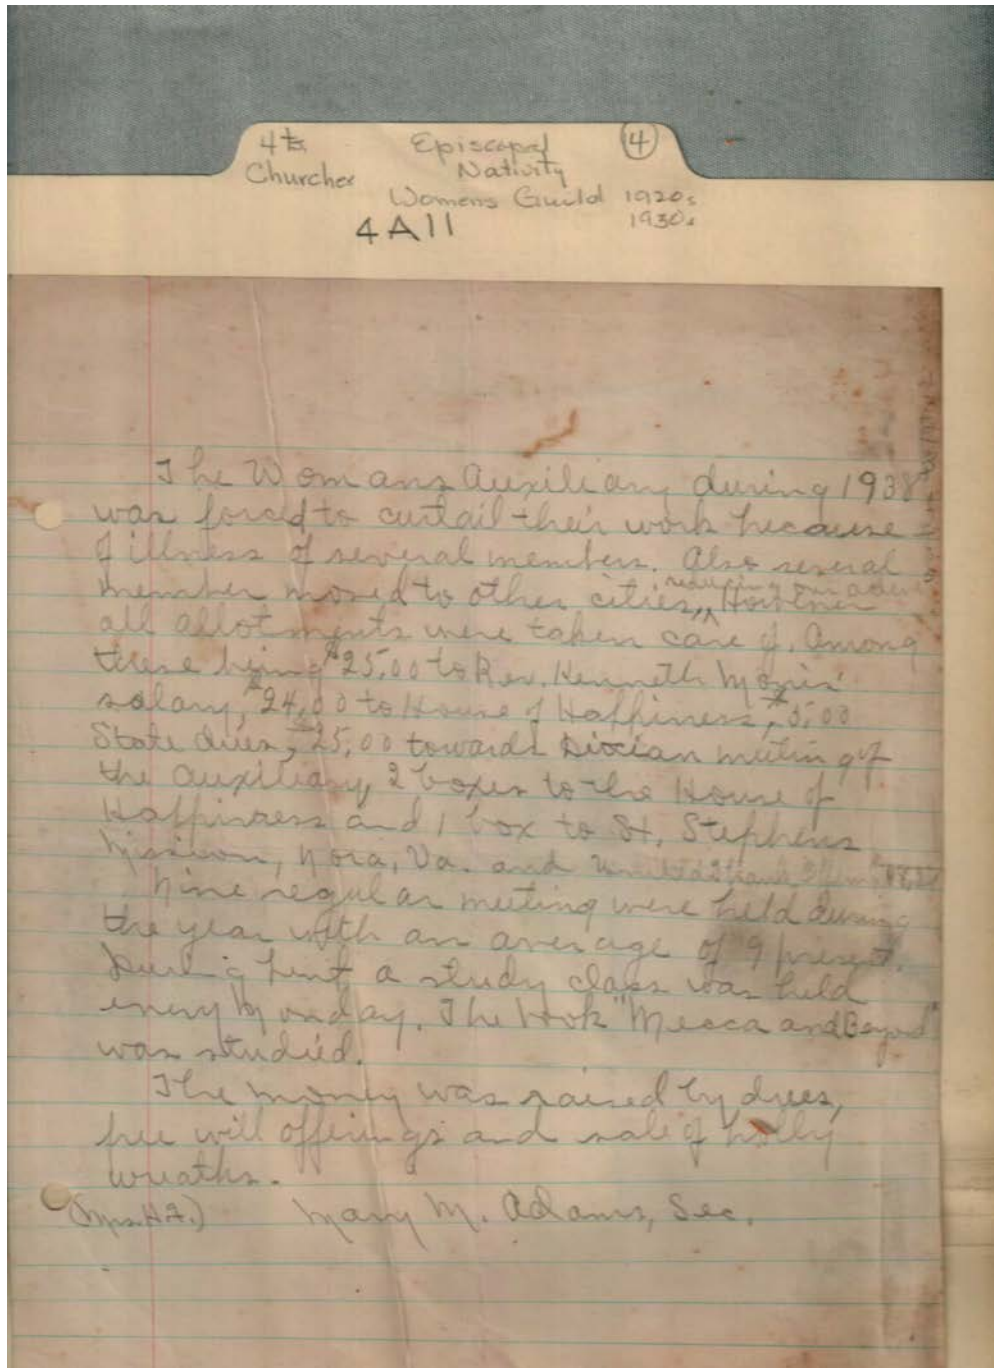 4th Episcopal 4
Churches Nativity
Womens Guild 1920s
4A11 1930s
The Womans Auxiliary during 1938
was forced to curtail their work because
of illness of several members. Also several
member moved to other cities, reducing our
However
all allotments were taken care of. Among
these being $25.00 to Rev. Kenneth Morris'
salary, $24.00 to House of Happiness, $5.00
State dues, $25.00 towards meeting of
the Auxiliary, 2 boxes to the House of
Happiness and 1 box to St. Stephens
Mission, Nora, Va. and United Thank
Nine regular meeting were held during
the year with an average of 9 present.
During Lent a study class was held
every Monday. The book "Mecca and Beyond"
was studied.
The money was raised by dues,
free will offerings and sale of holly
wreaths.
(Mrs. H.F.) Mary M. Adams, Sec.